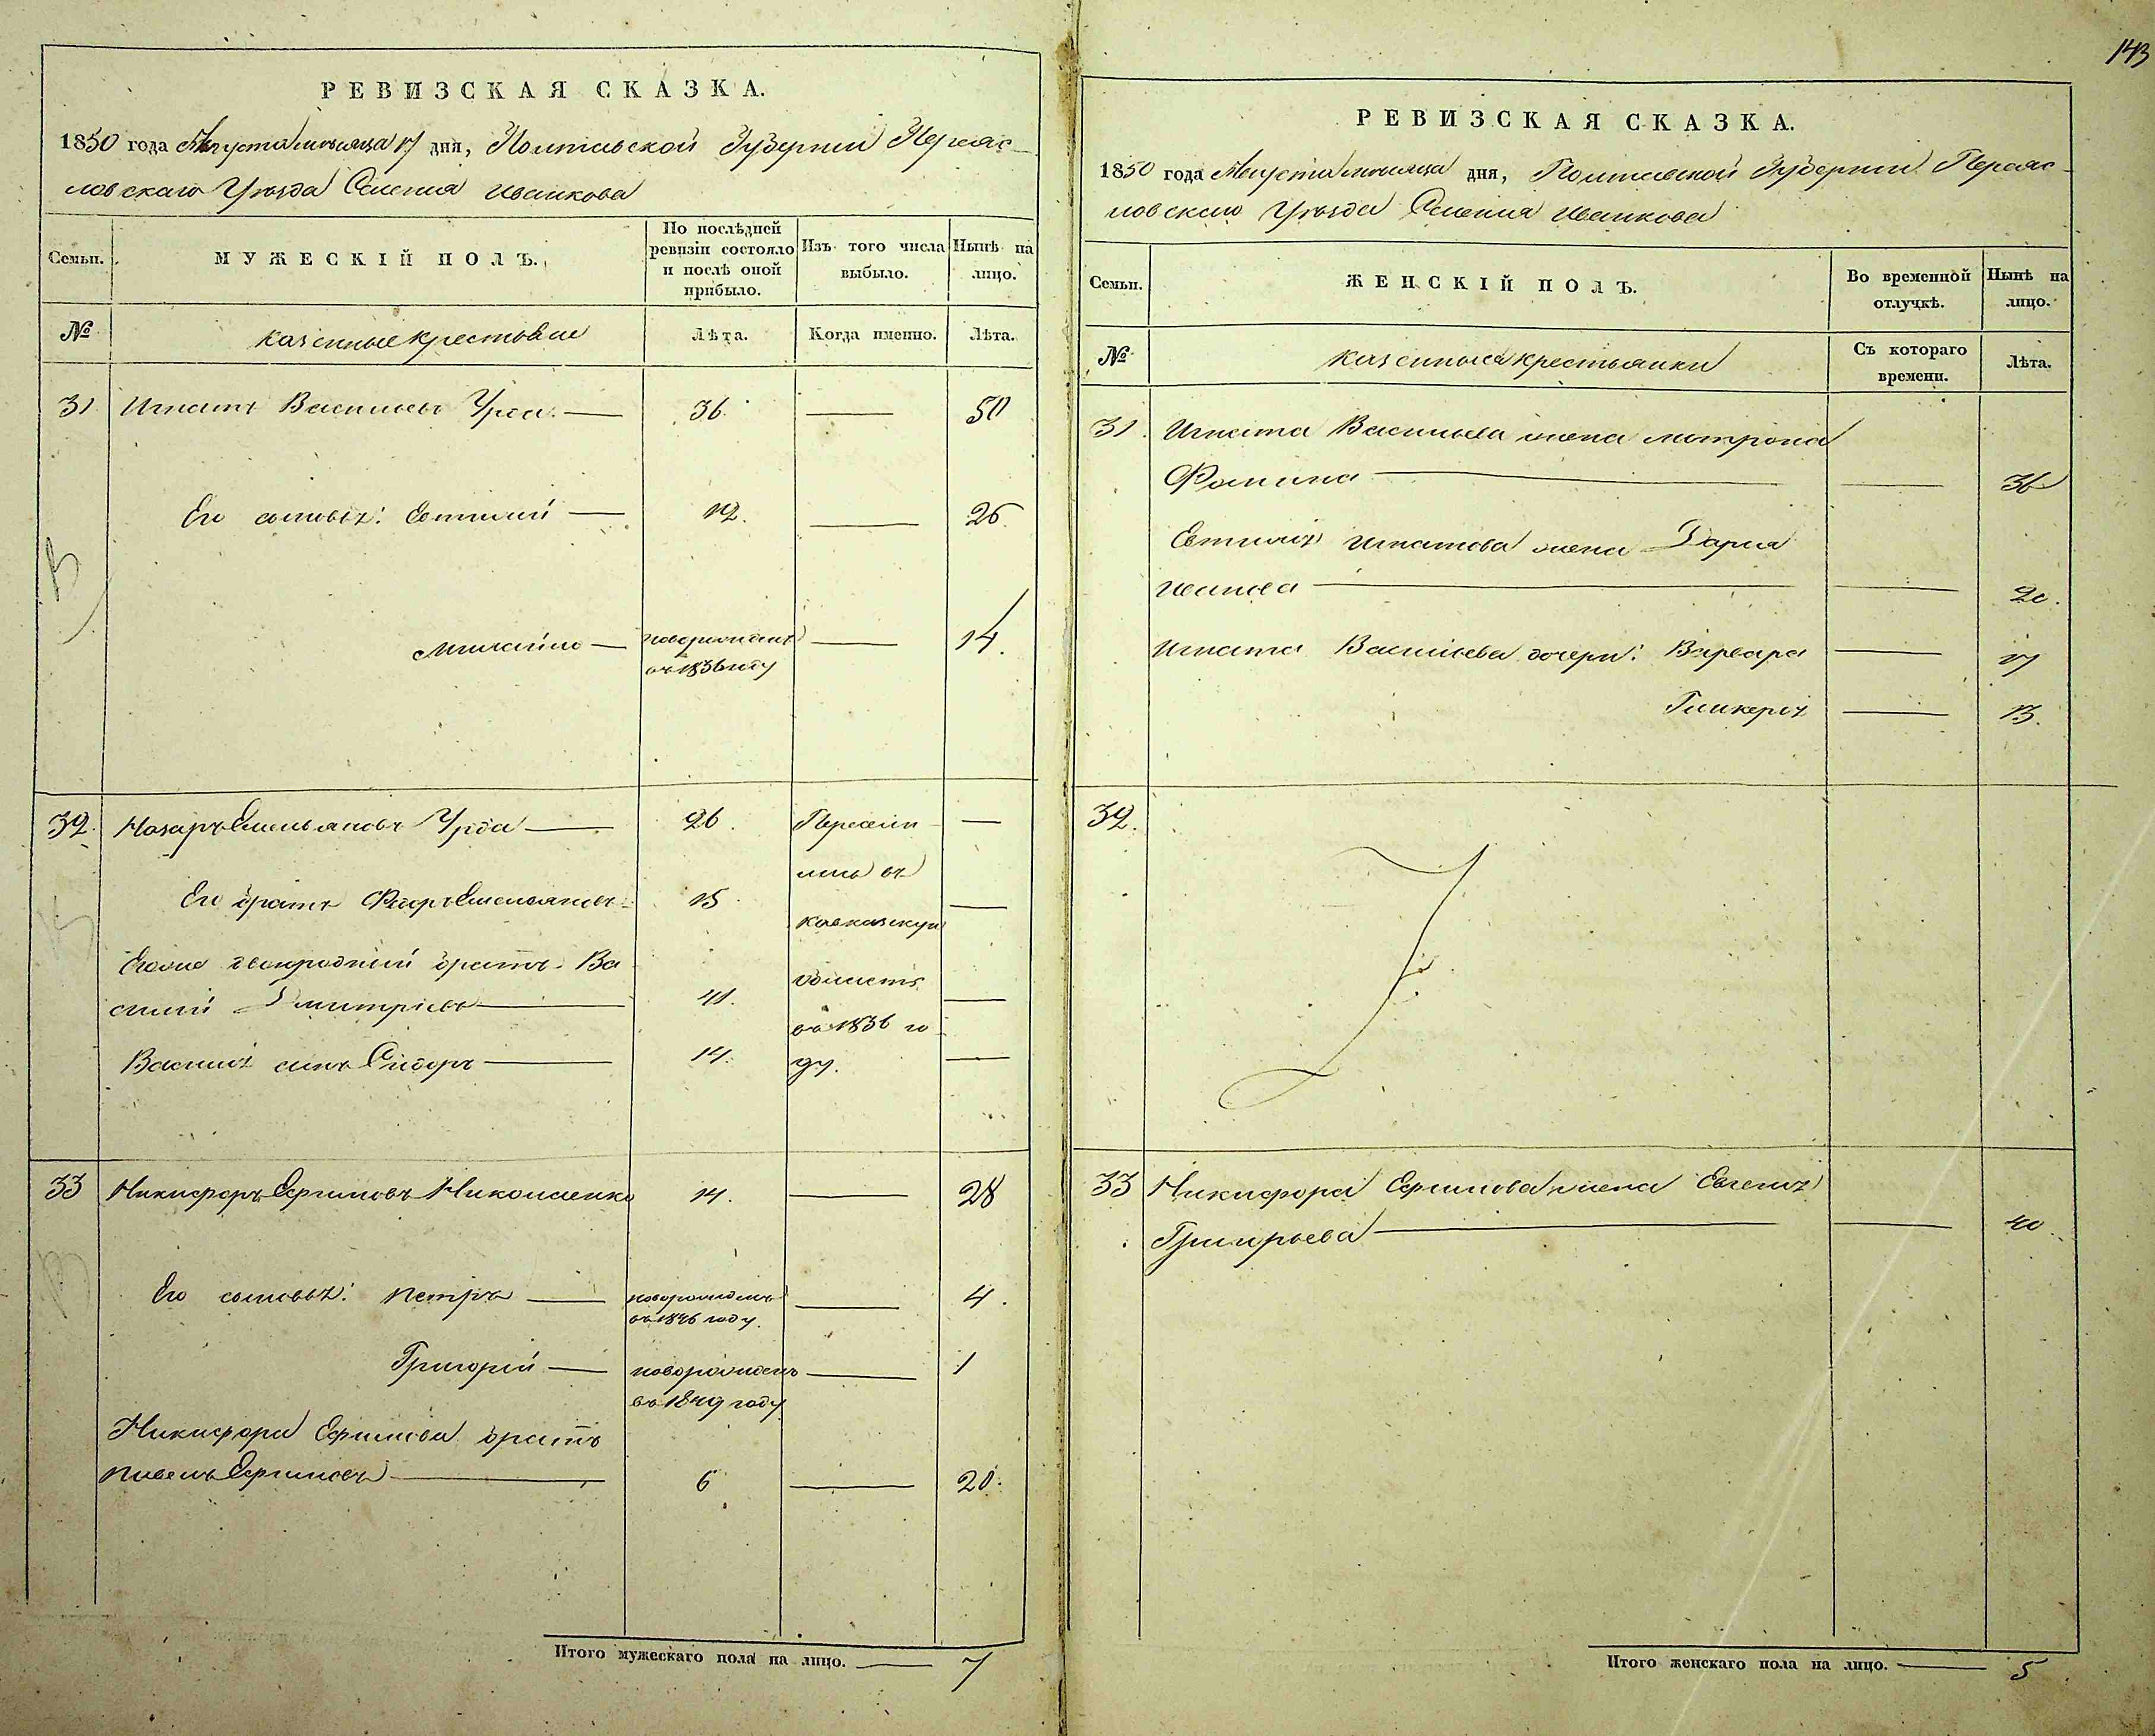 143
РЕВИЗСКАЯ СКАЗКА.
1850 года Августа месяца 17 дня, Полтавской Губернии Переяс-
ловскаго Уезда Селения Иванкова
Семьи.
МУЖЕСКІЙ ПОЛЪ.
По послѣдней ревизіи состояло и послѣ оной прибыло.
Изъ того числа выбыло.
Нынѣ на лицо.
№
казенные крестьяне
Лѣта.
Когда именно.
Лѣта.
31 Игнатъ Васильевъ Урда — 36. — 50
Его сыновья: Евтихій — 12. — 26
Михайло — новорожденъ — 14.
въ 1836 году
32. Назаръ Емельяновъ Урда — 26. Пересел- —
Его братъ Федоръ Емельяновъ 15. —
лись въ
кавказскую
Его же двоюродній братъ Ва-
силій Дмитріевъ — 41. —
область
въ 1836 го-
Василія сынъ Сидоръ — 14. —
ду.
33 Никифоръ Ефимовъ Николаенко 14. — 28
Его сыновья: Петръ — новорожденъ — 4.
въ 1846 году.
Григорій — новорожденъ — 1
въ 1849 году
Никифора Ефимова братъ
Павелъ Ефимовъ — 6 — 20.
Итого мужескаго пола на лицо. — 7
РЕВИЗСКАЯ СКАЗКА.
1850 года Августа месяца дня, Полтавской Губернии Переяс-
ловскаго Уезда Селения Иванкова
Семьи.
ЖЕНСКІЙ ПОЛЪ.
Во временной отлучкѣ.
Нынѣ на лицо.
№
казенныя крестьянки
Съ котораго времени.
Лѣта.
31. Игната Васильева жена Матрона
Фомина — — 36
Евтихія Игнатова жена Дарія
Иванова — — 20.
Игната Васильева дочери: Варвара — 17
Гликерія — 13.
32.
33 Никифора Ефимова жена Евгенія
Григорьева — — 40
Итого женскаго пола на лицо. — 5